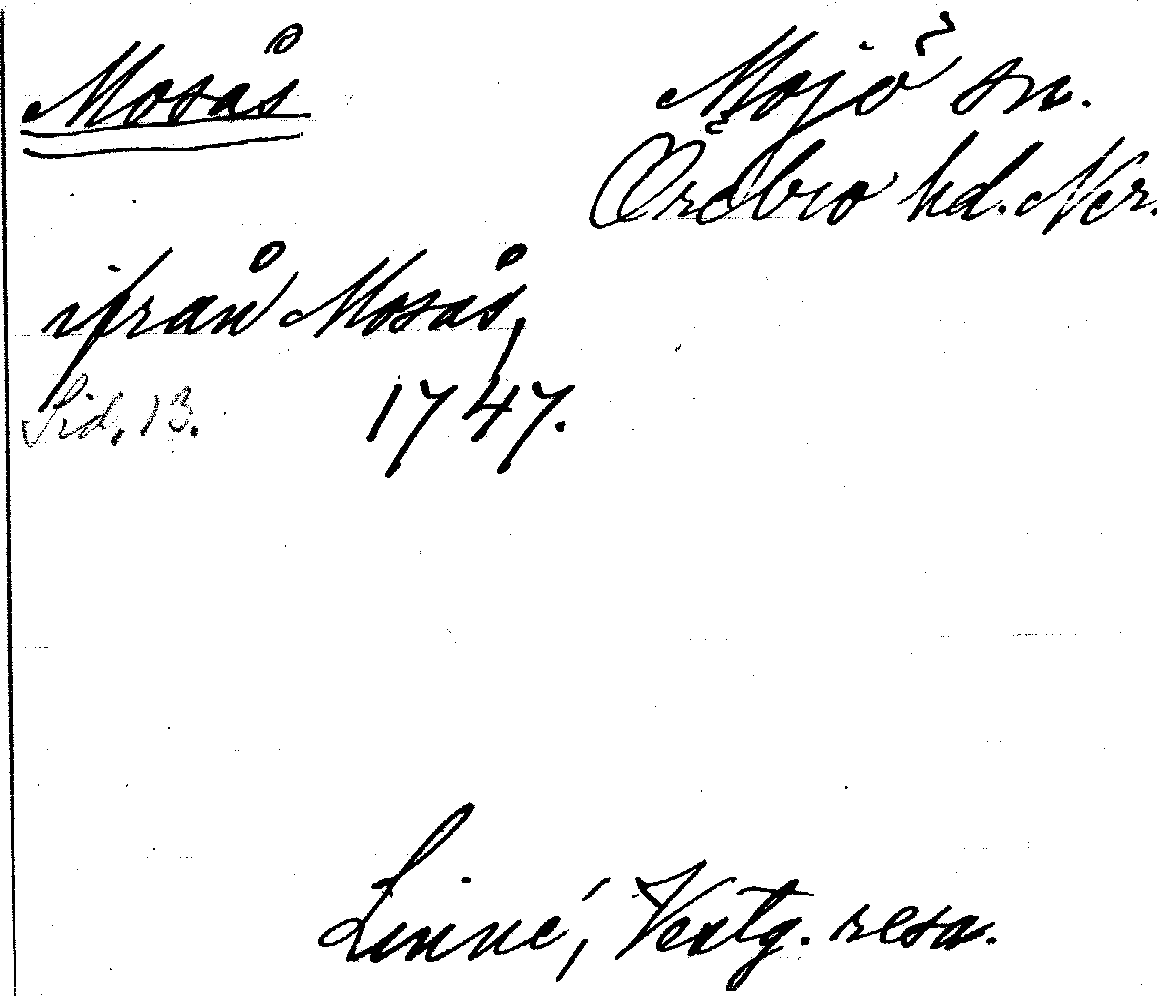 Mosås
Mojö sn.
Örebro hd. Ner.
ifrån Mosås,
Sid. 13. 1747.
Linné, Vestg. resa.